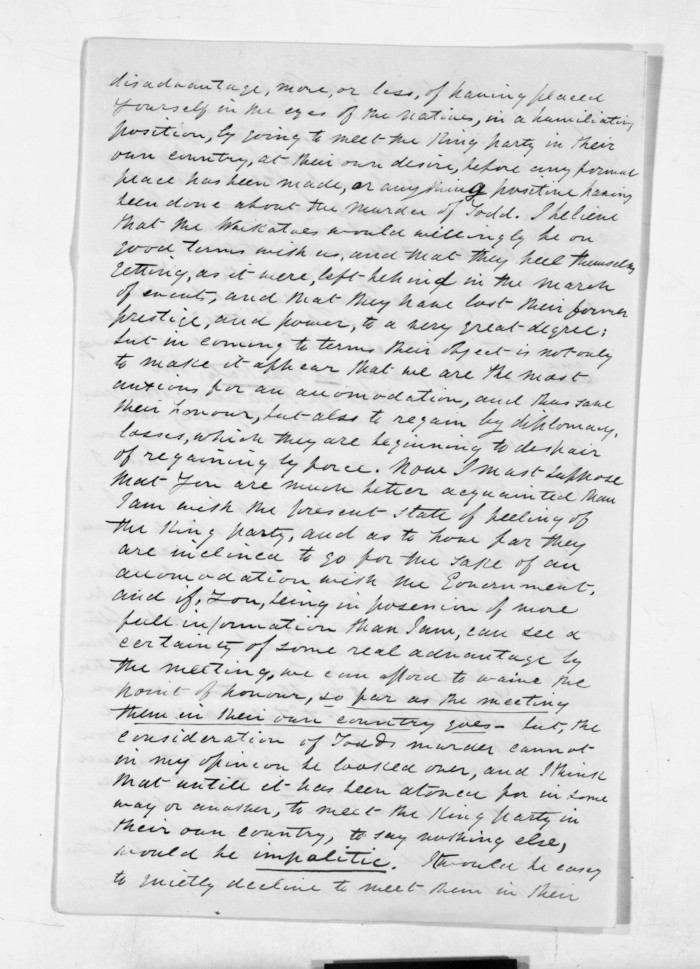 disadvantage, more, or less, of having placed
yourself in the eyes of the natives, in a humiliating
position, by going to meet the King party in their
own country, at their own desire, before any formal
peace has been made, or anything positive having
been done about the murder of Todd. I believe
that the Waikatoes would willingly be on
good terms with us, and that they feel themselves
getting, as it were, left behind in the march
of events, and that they have lost their former
prestige, and power, to a very great degree;
but in coming to terms their object is not only
to make it appear that we are the most
anxious for an acomodation, and thus save
their honour, but also to regain by diplomacy,
losses, which they are beginning to despair
of regaining by force. Now I must suppose
that You are much better acquainted than
I am with the present state of feeling of
the King party, and as to how far they
are inclined to go for the sake of an
acomodation with the Government,
and if, You, being in possession of more
full information than I am, can see a
certainty of some real advantage by
the meeting, we can afford to waive the
point of honour, so far as the meeting
them in their own country goes - but, the
consideration of Todds murder cannot
in my opinion be looked over, and I think
that untill it has been atoned for in some
way or another, to meet the King party in
their own country, to say nothing else,
would be impolitic. It would be easy
to quietly decline to meet them in their